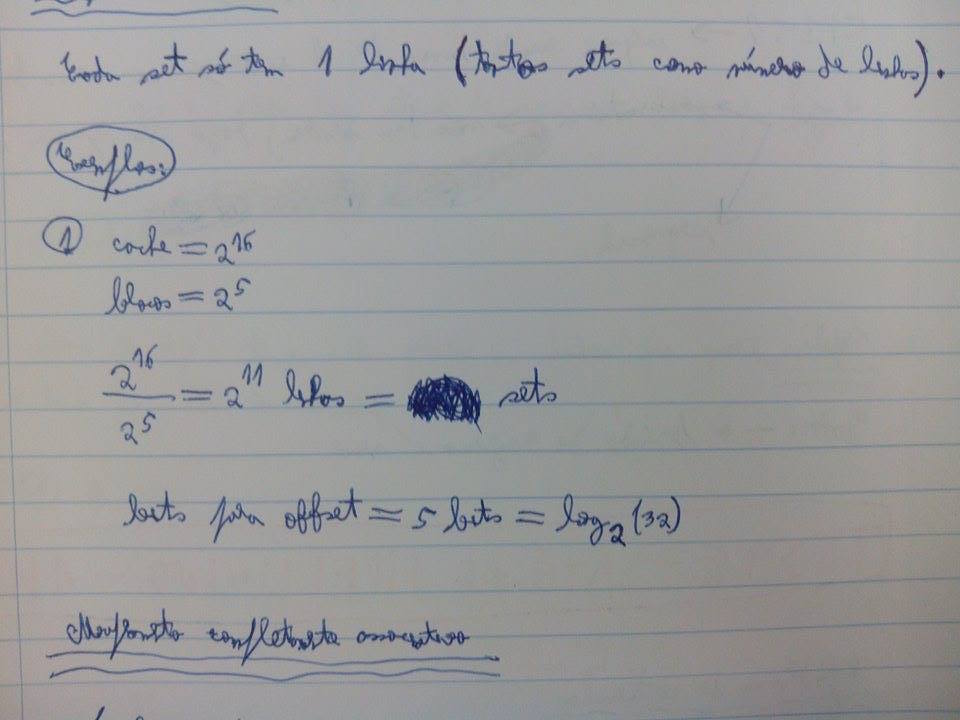 Cada set só tem 1 linha (tantos sets como número de linhas).
Exemplos:
1 cache = 2^16
blocos = 2^5
2^16 / 2^5 = 2^11 linhas = sets
bits para offset = 5 bits = log_2 (32)
Mapeamento completamente associativo